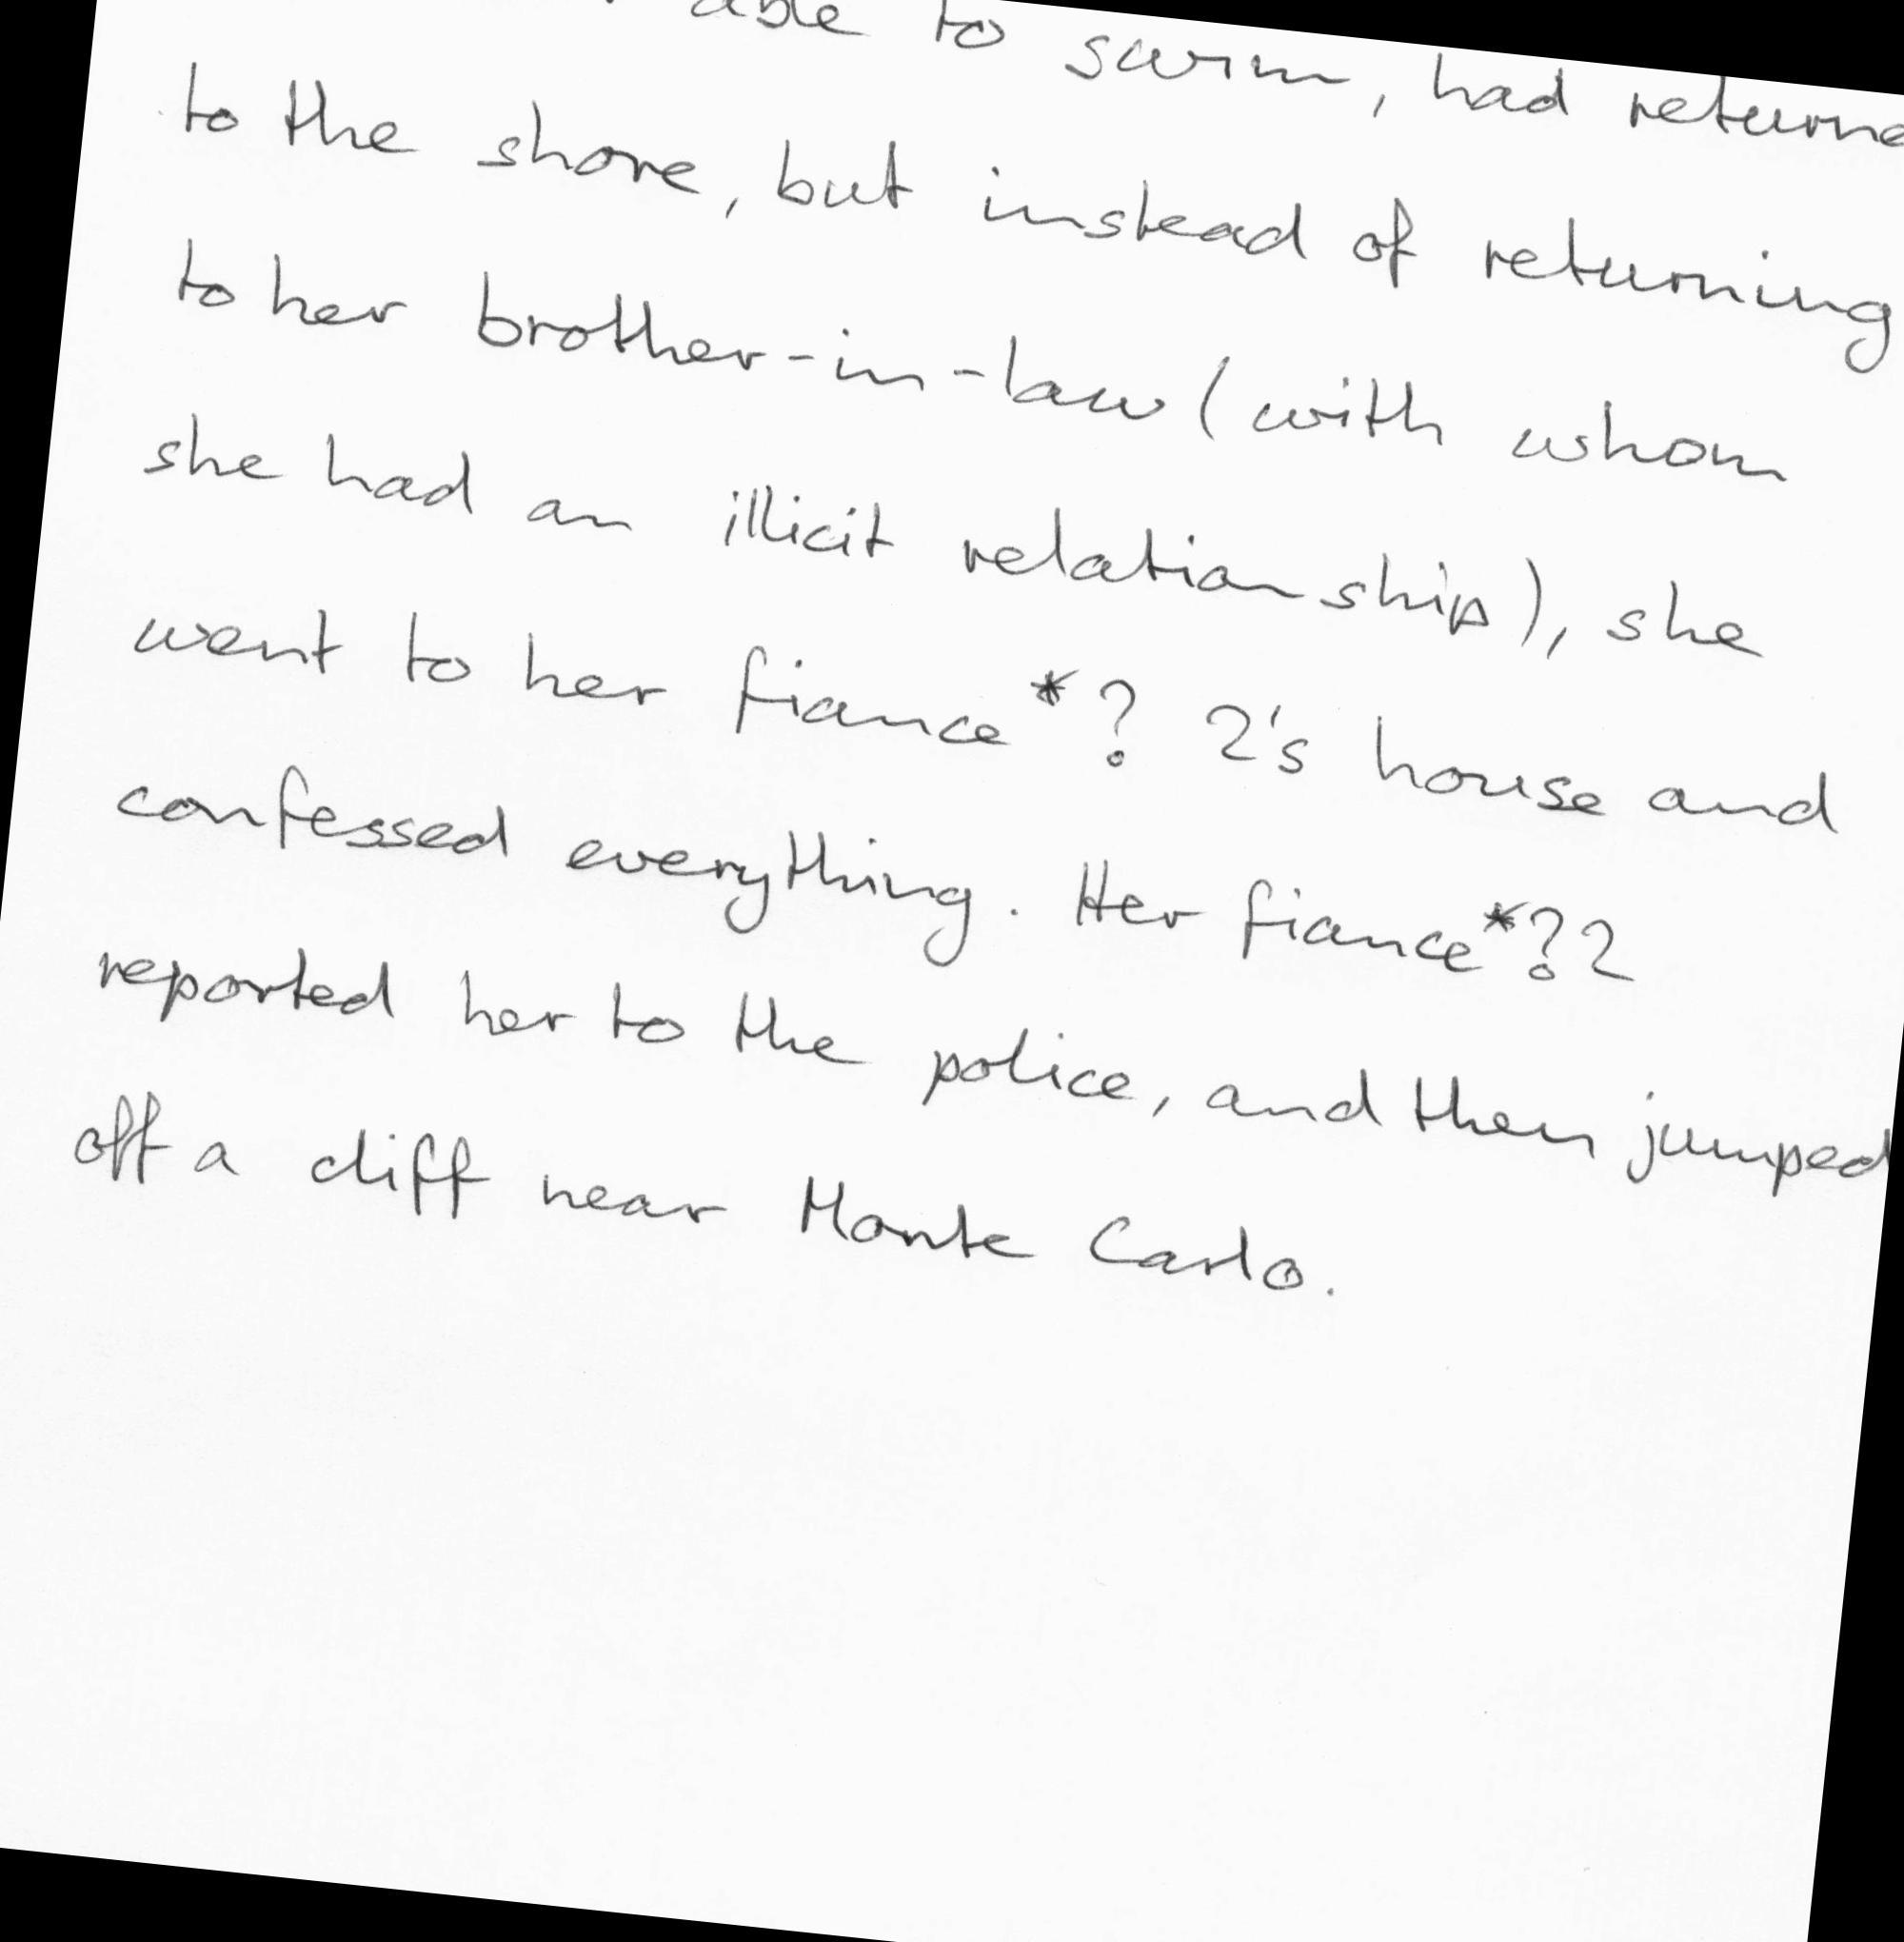 able to swim, had returne
to the shore, but instead of returning
to her brother-in-law (with whom
she had an illicit relationship), she
went to her fiance*? 2's house and
confessed everything. Her fiance*?2
reported her to the police, and then jumped
off a cliff near Monte Carlo.